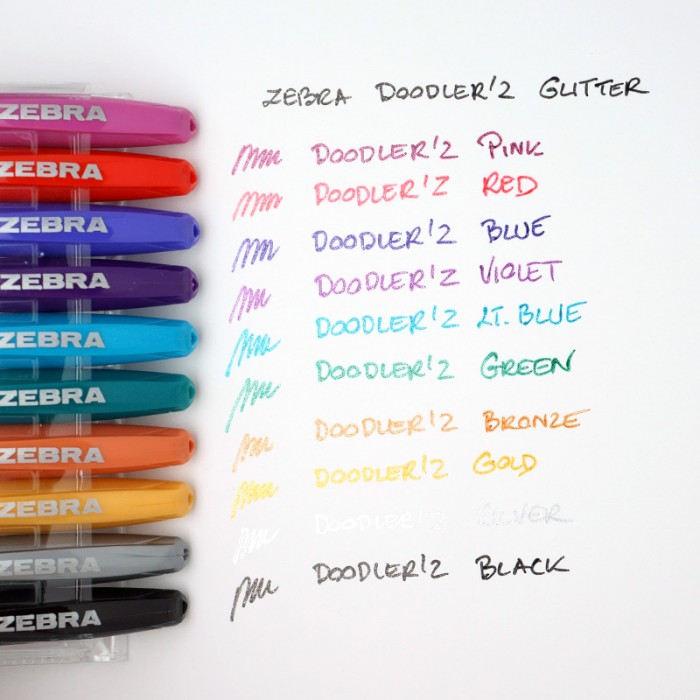 ZEBRA DOODLER'Z GLITTER
ZEBRA
DOODLER'Z PINK
ZEBRA
DOODLER'Z RED
ZEBRA
DOODLER'Z BLUE
ZEBRA
DOODLER'Z VIOLET
ZEBRA
DOODLER'Z LT. BLUE
ZEBRA
DOODLER'Z GREEN
ZEBRA
DOODLER'Z BRONZE
ZEBRA
DOODLER'Z GOLD
ZEBRA
DOODLER'Z SILVER
ZEBRA
DOODLER'Z BLACK